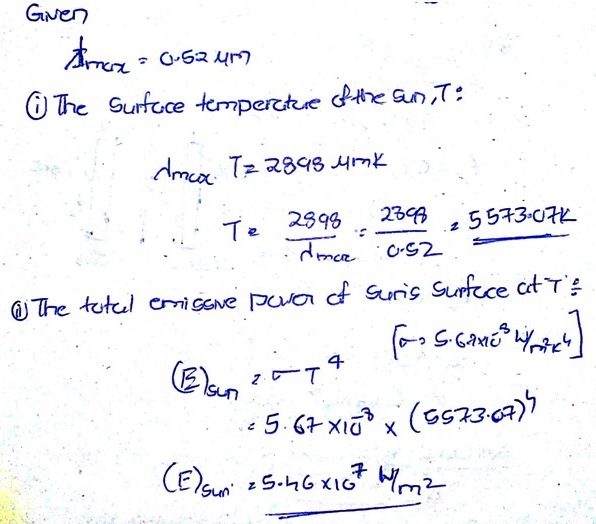 Given
λmax = 0.52 μm
(i) The Surface temperature of the sun, T:
λmax T = 2898 μmK
T = 2898/λmax = 2898/0.52 = 5573.07K
(ii) The total emissive power of sun's surface at T:
[σ → 5.67×10⁻⁸ W/m²K⁴]
(E)sun = σT⁴
= 5.67 × 10⁻⁸ × (5573.07)⁴
(E)sun = 5.46 × 10⁷ W/m2